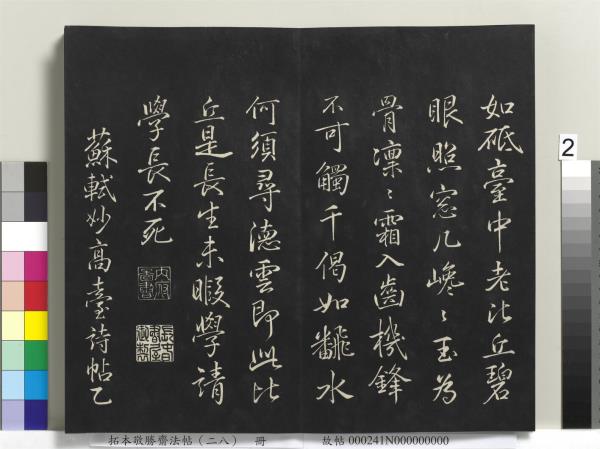 如砥臺中老比丘碧
眼照窓几巉〻玉為
骨凜〻霜入齒機鋒
不可觸千偈如飜水
何須尋德雲即此比
丘是長生未暇學請
學長不死
蘇軾妙高臺詩帖乙
2
拓本敬勝齋法帖（二八） 冊 故帖 000241N000000000